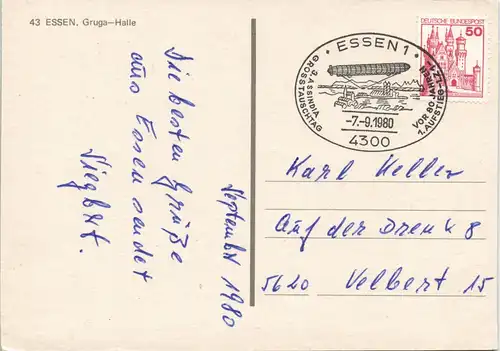 43 ESSEN, Gruga—Halle
Die besten Grüße
aus Essen sendet
Siegbert.
September 1980
DEUTSCHE BUNDESPOST
50
• ESSEN 1 •
3. ASSINDIA
GROSSTAUSCHTAG
VOR 80 JAHREN
1. AUFSTIEG LZ 1
-7.-9.1980
4300
Karl Keller
Auf der Drenk 8
5620 Velbert 15